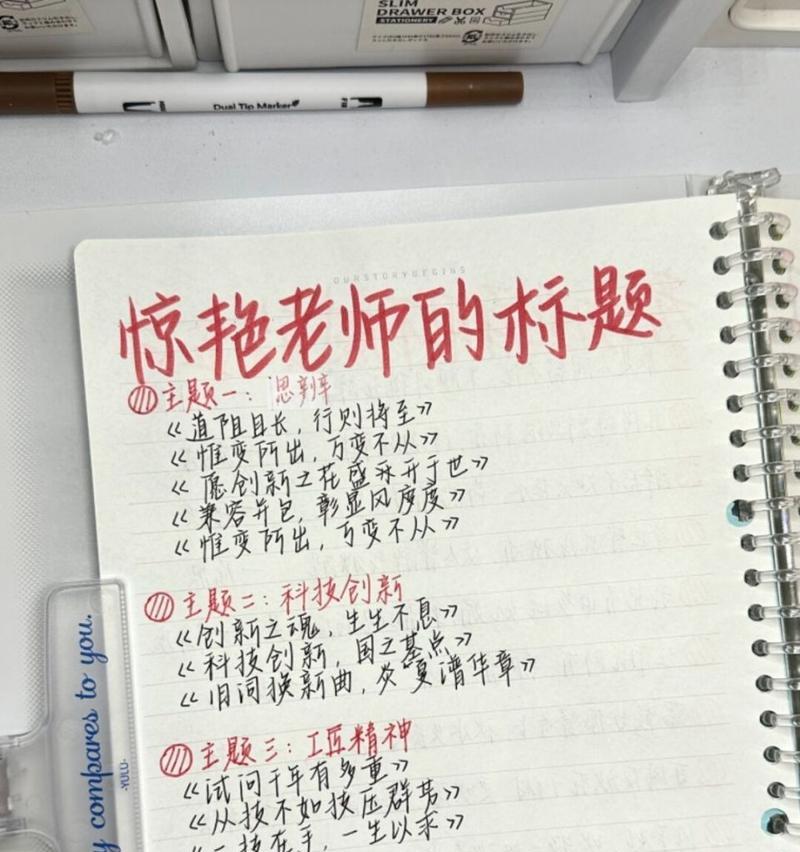 SLIM
DRAWER BOX
STATIONERY
Dual Tip Marker
OURSTORYBEGINS
惊艳老师的标题
主题一：思辨
《道阻且长，行则将至》
《惟变所出，万变不从》
《愿创新之花盛永开于世》
《兼容并包，彰显风度度》
《惟变所出，万变不从》
主题二：科技创新
《创新之魂，生生不息》
《科技创新，国之基点》
《旧词换新曲，炎夏谱华章》
主题三：工匠精神
《试问千年有多重》
《从技不如技压群芳》
《一技在手，一生以求》
y compares to you.
-YULU-